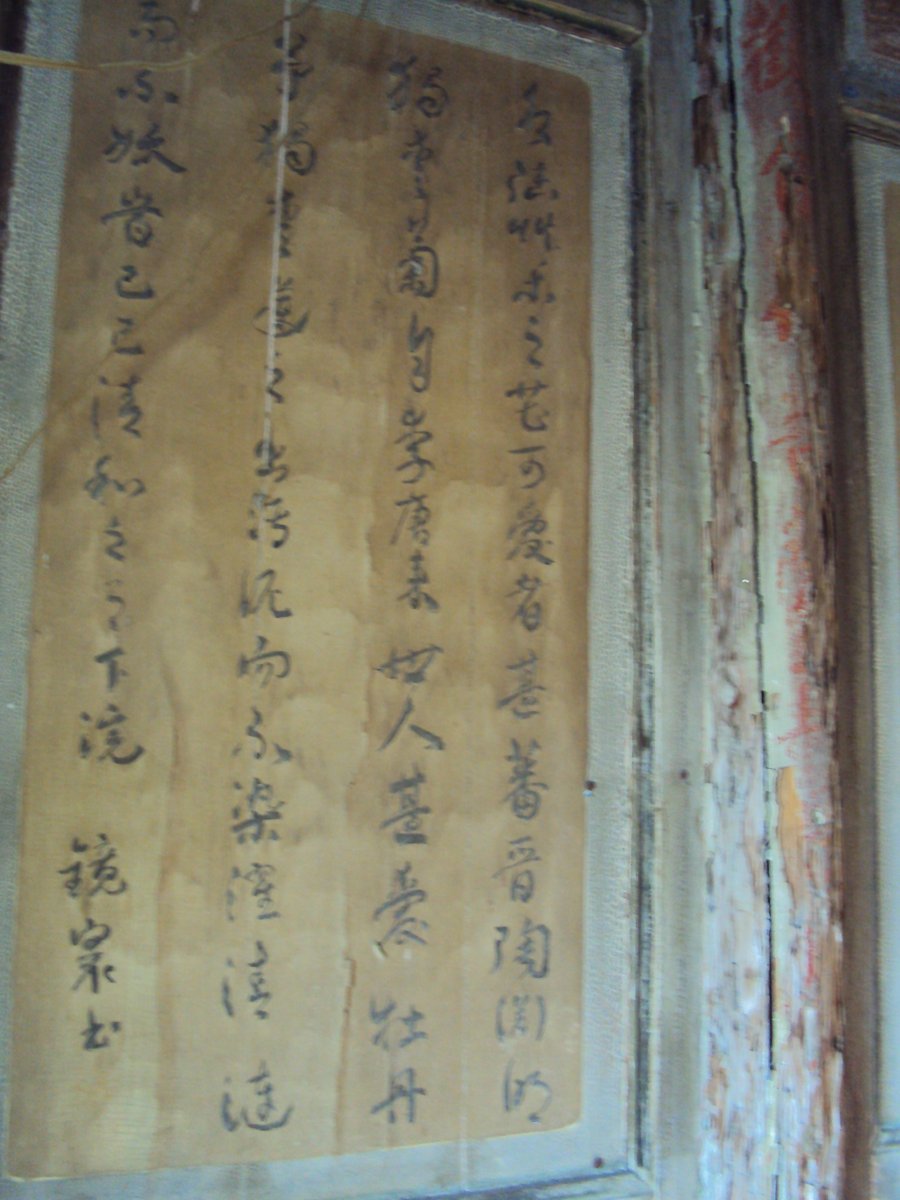 水陸艸木之花可愛者甚蕃晋陶渊明
獨愛菊自李唐来世人甚愛牡丹
予獨愛蓮之出淤泥而不染濯清漣
而不妖旹己巳清和之月下浣 鏡寰书